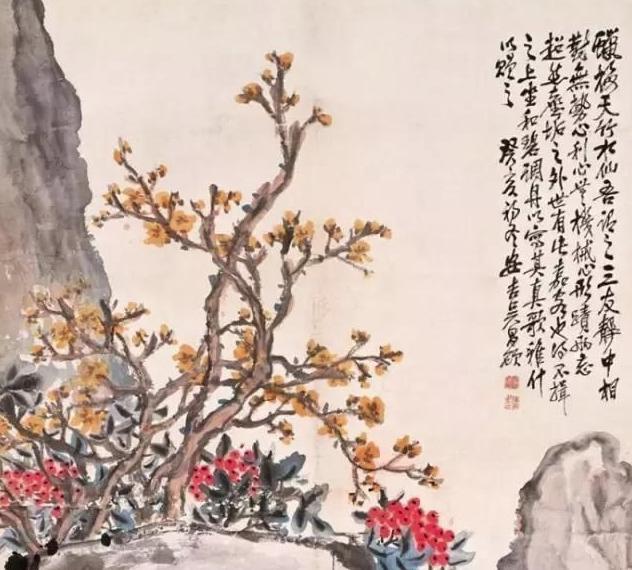 蠟梅天竹水仙吾謂之三友靜中相
對無勢心利心無機械心形蹟兩忘
超無塵垢之外世有此嘉客也得不揖
之上坐和碧調丹以寫其真歌雅什
以贈之
癸亥初冬安吉吳昌碩